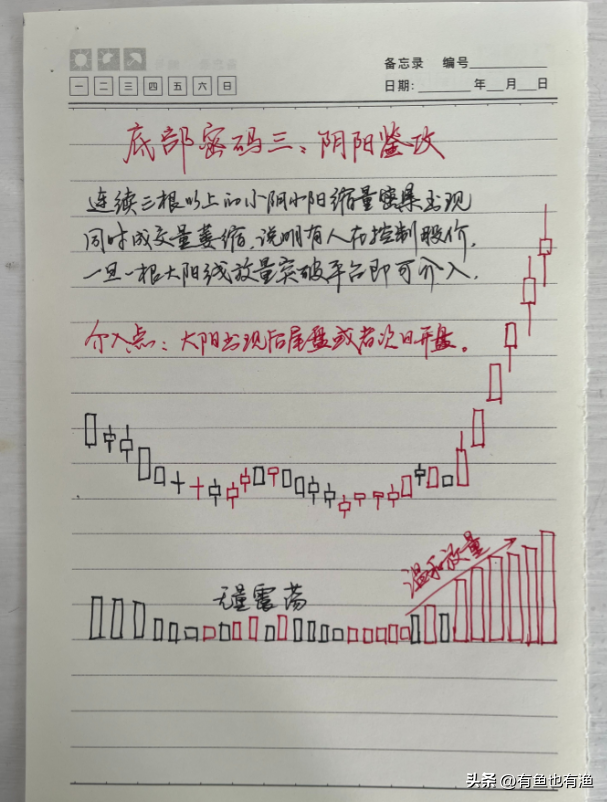 备忘录 编号
一 二 三 四 五 六 日
日期: 年 月 日
底部密码三:阴阳鉴攻
连续三根以上的小阴小阳缩量密集出现
同时成交量萎缩,说明有人在控制股价,
一旦一根大阳线放量突破平台即可介入.
介入点:大阳出现后尾盘或者次日开盘。
温和放量
无量震荡
头条 @有鱼也有渔